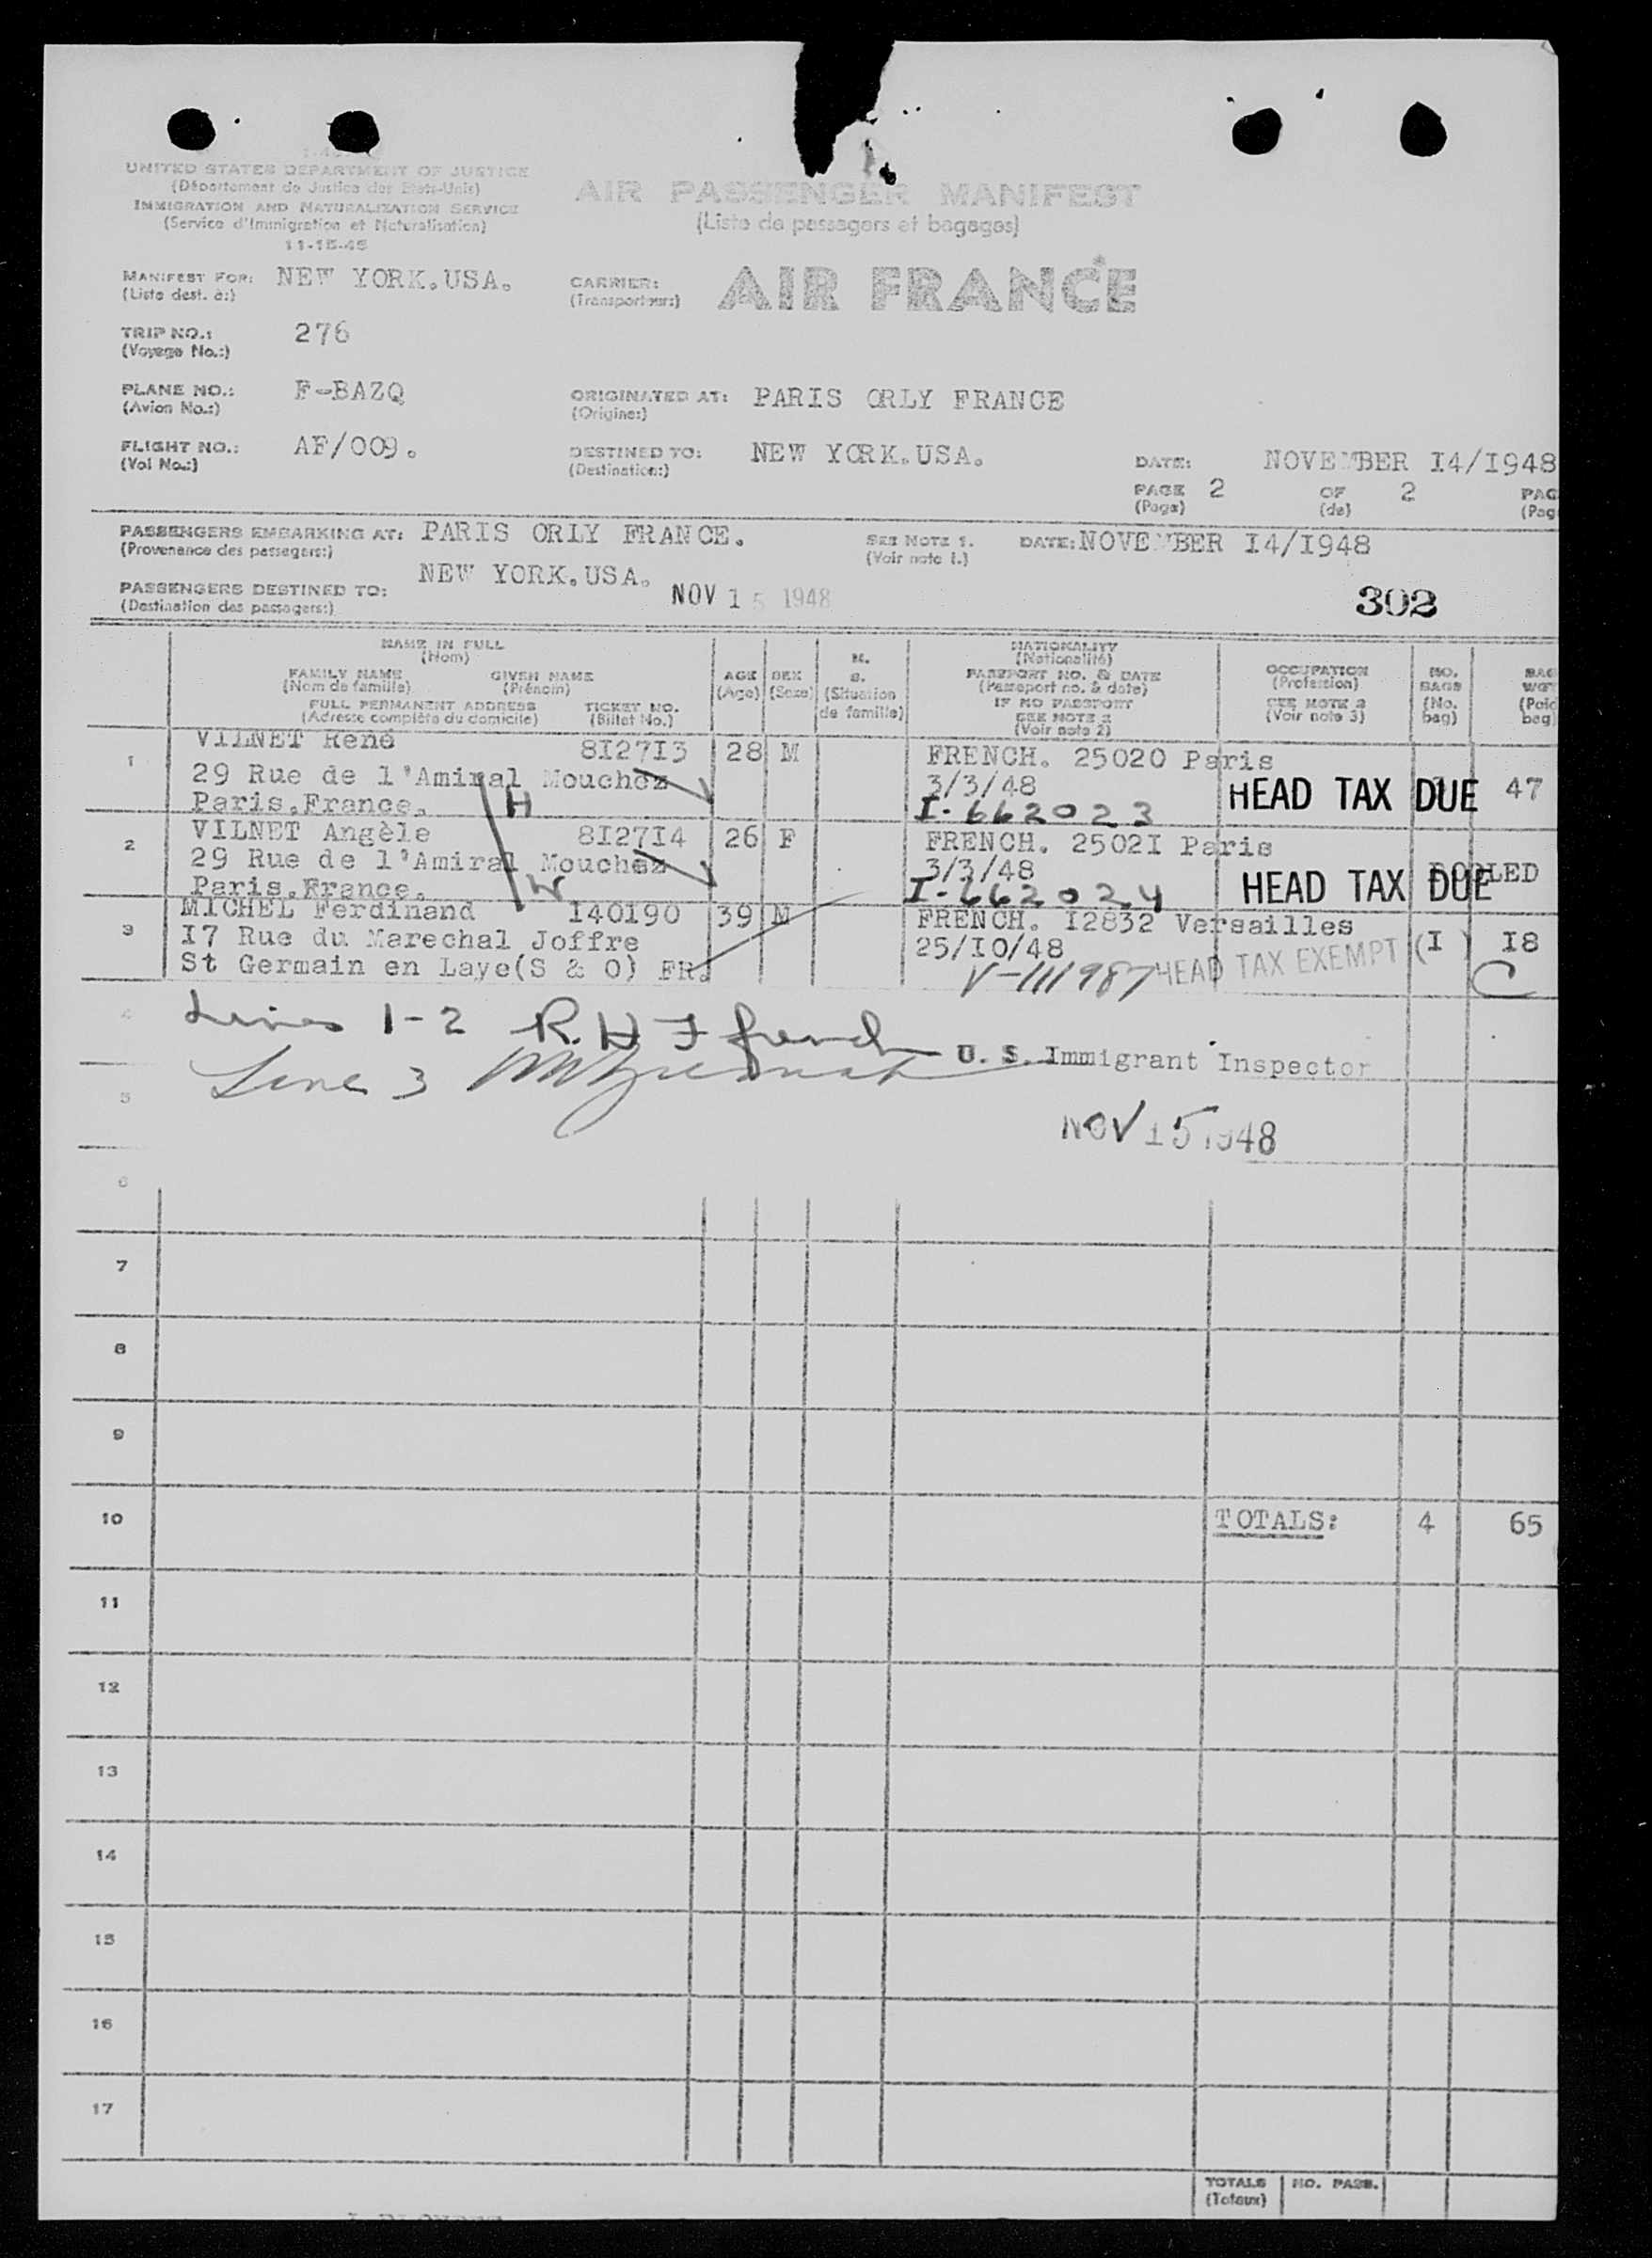 UNITED STATES DEPARTMENT OF JUSTICE
(Département de Justice des Etats-Unis)
IMMIGRATION AND NATURALIZATION SERVICE
(Service d'Immigration et Naturalisation)
11-15-45
AIR PASSENGER MANIFEST
(Liste de passagers et bagages)
MANIFEST FOR: NEW YORK.USA.
(Liste dest. à:)
CARRIER: AIR FRANCE
(Transporteur:)
TRIP NO.: 276
(Voyage No.:)
PLANE NO.: F-BAZQ
(Avion No.:)
ORIGINATED AT: PARIS ORLY FRANCE
(Origine:)
FLIGHT NO.: AF/009.
(Vol No.:)
DESTINED TO: NEW YORK.USA.
(Destination:)
DATE: NOVEMBER I4/I948
PAGE 2 OF 2 PAG
(Page) (de) (Pag
PASSENGERS EMBARKING AT: PARIS ORLY FRANCE.
(Provenance des passagers:)
SEE NOTE 1.
(Voir note 1.)
DATE: NOVEMBER I4/I948
PASSENGERS DESTINED TO: NEW YORK.USA.
(Destination des passagers:)
NOV 15 1948
302
NAME IN FULL
(Nom)
FAMILY NAME GIVEN NAME
(Nom de famille) (Prénom)
FULL PERMANENT ADDRESS TICKET NO.
(Adresse complète du domicile) (Billet No.)
AGE
(Age)
SEX
(Sexe)
M.
S.
(Situation
de famille)
NATIONALITY
(Nationalité)
PASSPORT NO. & DATE
(Passeport no. & date)
IF NO PASSPORT
SEE NOTE 2
(Voir note 2)
OCCUPATION
(Profession)
SEE NOTE 3
(Voir note 3)
NO.
BAGS
(No.
bag)
BAG
WGT
(Poid
bag)
1 VILNET René 8I27I3 28 M FRENCH. 25020 Paris
29 Rue de l'Amiral Mouchez 3/3/48 HEAD TAX DUE 47
Paris.France. H I-662023
2 VILNET Angèle 8I27I4 26 F FRENCH. 2502I Paris
29 Rue de l'Amiral Mouchez 3/3/48 POOLED
Paris.France. W I-662024 HEAD TAX DUE
3 MICHEL Ferdinand I40I90 39 M FRENCH. I2832 Versailles
I7 Rue du Marechal Joffre 25/IO/48 (I ) I8
St Germain en Laye(S & O) FR. V-111987 HEAD TAX EXEMPT C
4
Lines 1-2 R.H.
U. S. Immigrant Inspector
Line 3
5
NOV 15 1948
6
7
8
9
10 TOTALS: 4 65
11
12
13
14
15
16
17
TOTALS NO. PASS.
(Totaux)